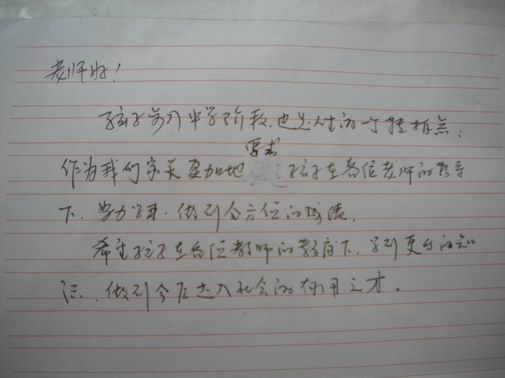 老师好!
孩子步入中学阶段,也是人生的一个转折点,
要求
作为我们家长更加地 孩子在各位老师的教导
下,努力学习,做到全方位的成绩。
希望孩子在各位教师的教育下,学到更多的知
识,做到今后走入社会的有用之才。